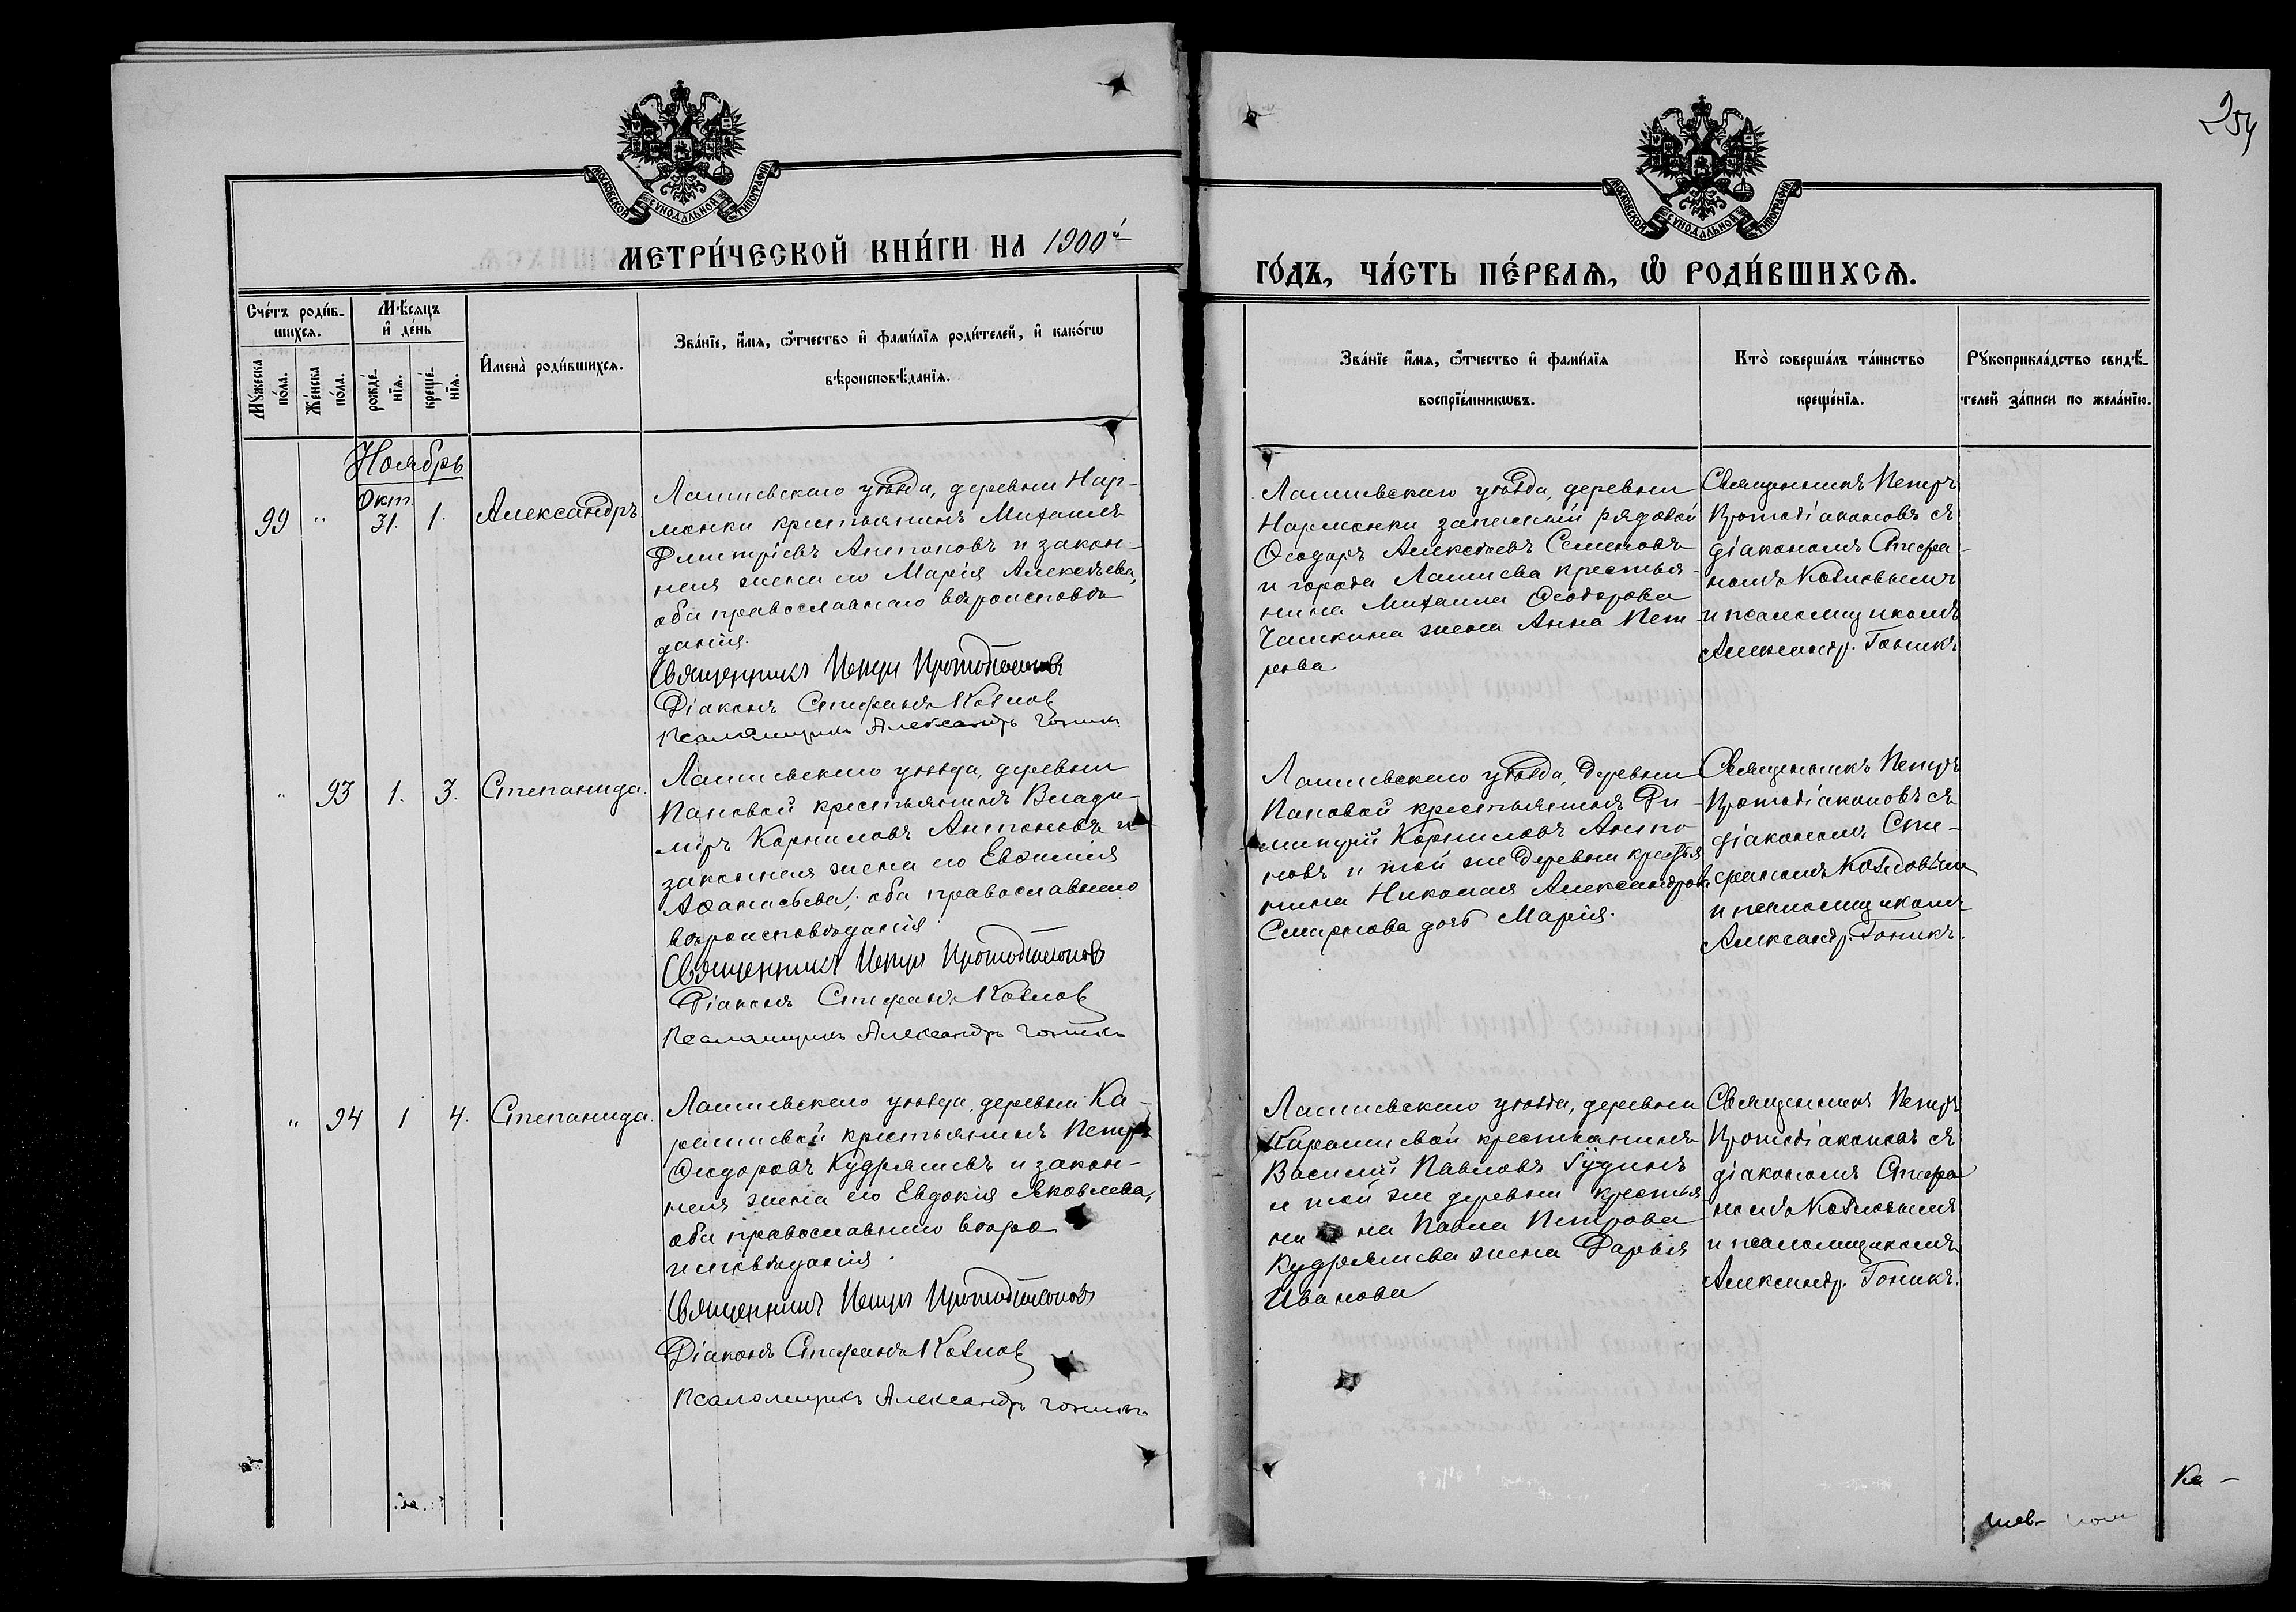 254
МОСКОВСКОЙ СѴНОДАЛЬНОЙ ТИПОГРАФІИ
МОСКОВСКОЙ СѴНОДАЛЬНОЙ ТИПОГРАФІИ
МЕТРИ́ЧЕСКОЙ КНИ́ГИ НА 1900й
ГО́ДЪ, ЧА́СТЬ ПЕ́РВАѦ, Ѡ РОДИ́ВШИХСѦ.
Сче́тъ роди́в-
шихсѧ.
Мꙋ́жеска
по́ла.
Же́нска
по́ла.
Мѣ́сѧцъ
и҆ де́нь
рожде́-
нїѧ.
креще́-
нїѧ.
И҆мена̀ роди́вшихсѧ.
Зва́нїе, и҆́мѧ, ѻ҆́тчество и҆ фами́лїѧ роди́телей, и҆ како́гѡ
вѣроисповѣ́данїѧ.
Зва́нїе и҆́мѧ, ѻ҆́тчество и҆ фами́лїѧ
воспрїе́мникѡвъ.
Кто̀ соверша́лъ та́инство
креще́нїѧ.
Рꙋкоприкла́дство свидѣ́-
телей за́писи по жела́нїю.
Ноябрь
99
"
Окт.
31.
1.
Александръ
Лаишевскаго уѣзда, деревни Нар-
монки крестьянинъ Михаилъ
Дмитріевъ Антоновъ и закон-
ная жена его Марія Алексѣева,
оба православнаго вѣроисповѣ-
данія.
Священникъ Петръ Протодіаконовъ
Діаконъ Стефанъ Козлов
Псаломщикъ Александръ Гоникъ
Лаишевскаго уѣзда, деревни
Нармонки запасный рядовой
Ѳеодоръ Алексѣевъ Семеновъ
и города Лаишева крестья-
нина Михаила Ѳеодорова
Чашкина жена Анна Пет-
рова.
Священникъ Петръ
Протодіаконовъ съ
діакономъ Стефа-
номъ Козловымъ
и псаломщикомъ
Александр. Гоникъ
"
93
1.
3.
Степанида.
Лаишевскаго уѣзда, деревни
Паповой крестьянинъ Влади-
міръ Корниловъ Антоновъ и
законная жена его Евѳимія
Аѳанасьева; оба православнаго
вѣроисповѣданія.
Священникъ Петръ Протодіаконовъ
Діаконъ Стефанъ Козлов
Псаломщикъ Александръ Гоникъ
Лаишевскаго уѣзда, деревни
Паповой крестьянинъ Ди-
митрій Корниловъ Анто-
новъ и той же деревни крестья
нина Николая Александрова
Смирнова дочь Марія.
Священникъ Петръ
Протодіаконовъ съ
діакономъ Сте-
фаномъ Козловымъ
и псаломщикомъ
Александр. Гоникъ.
"
94
1
4.
Степанида.
Лаишевскаго уѣзда, деревни Ка-
раишевой крестьянинъ Петръ
Ѳеодоровъ Кудряшевъ и закон-
ная жена его Евдокія Яковлева,
оба православнаго вѣро-
исповѣданія.
Священникъ Петръ Протодіаконовъ
Діаконъ Стефанъ Козлов
Псаломщикъ Александръ Гоникъ
Лаишевскаго уѣзда, деревни
Караишевой крестьянинъ
Василій Павловъ Гудинъ
и той же деревни крестья
ни на Павла Петрова
Кудряшева жена Дарья
Иванова
Священникъ Петръ
Протодіаконовъ съ
діакономъ Стефа
номъ Козловымъ
и псаломщикомъ
Александр. Гоникъ.
Ка-